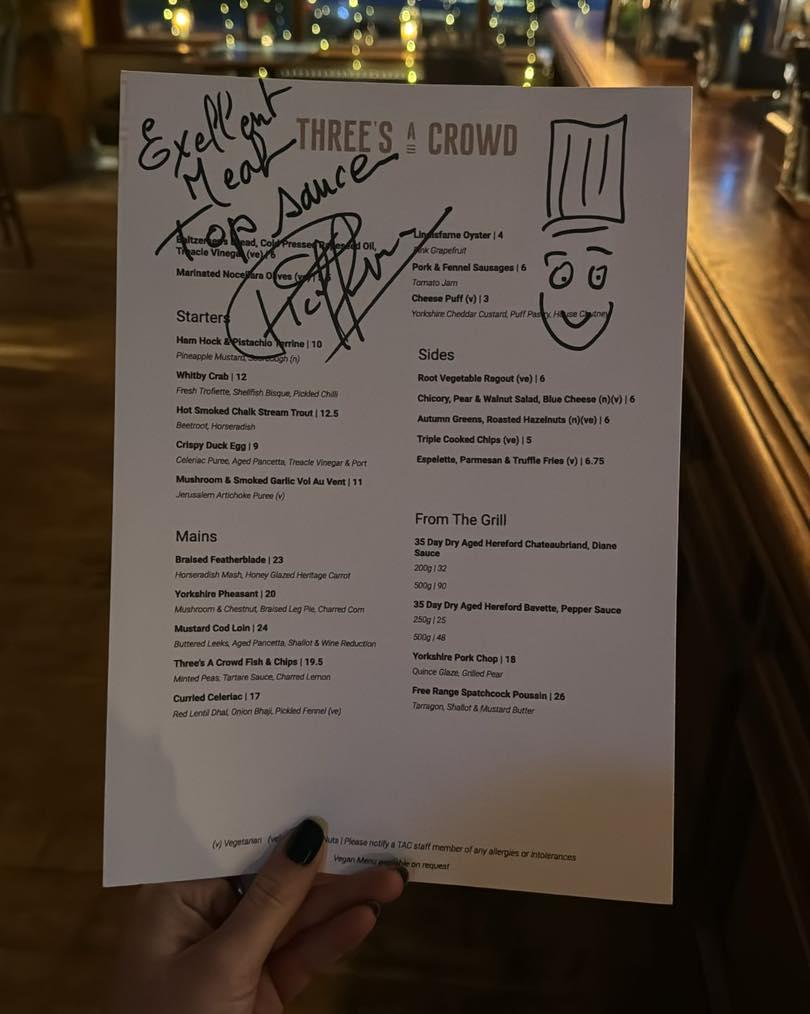 Exellent
Meat
Top Sauce
THREE'S A CROWD
Baltzersen's Bread, Cold Pressed Rapeseed Oil,
Treacle Vinegar (ve) | 6
Marinated Nocellara Olives (ve)
Lindisfarne Oyster | 4
Pink Grapefruit
Pork & Fennel Sausages | 6
Tomato Jam
Cheese Puff (v) | 3
Yorkshire Cheddar Custard, Puff Pastry, House Chutney
Starters
Ham Hock & Pistachio Terrine | 10
Pineapple Mustard, Sourdough (n)
Whitby Crab | 12
Fresh Trofiette, Shellfish Bisque, Pickled Chilli
Hot Smoked Chalk Stream Trout | 12.5
Beetroot, Horseradish
Crispy Duck Egg | 9
Celeriac Puree, Aged Pancetta, Treacle Vinegar & Port
Mushroom & Smoked Garlic Vol Au Vent | 11
Jerusalem Artichoke Puree (v)
Mains
Braised Featherblade | 23
Horseradish Mash, Honey Glazed Heritage Carrot
Yorkshire Pheasant | 20
Mushroom & Chestnut, Braised Leg Pie, Charred Corn
Mustard Cod Loin | 24
Buttered Leeks, Aged Pancetta, Shallot & Wine Reduction
Three's A Crowd Fish & Chips | 19.5
Minted Peas, Tartare Sauce, Charred Lemon
Curried Celeriac | 17
Red Lentil Dhal, Onion Bhaji, Pickled Fennel (ve)
Sides
Root Vegetable Ragout (ve) | 6
Chicory, Pear & Walnut Salad, Blue Cheese (n)(v) | 6
Autumn Greens, Roasted Hazelnuts (n)(ve) | 6
Triple Cooked Chips (ve) | 5
Espelette, Parmesan & Truffle Fries (v) | 6.75
From The Grill
35 Day Dry Aged Hereford Chateaubriand, Diane
Sauce
200g | 32
500g | 90
35 Day Dry Aged Hereford Bavette, Pepper Sauce
250g | 25
500g | 48
Yorkshire Pork Chop | 18
Quince Glaze, Grilled Pear
Free Range Spatchcock Poussin | 26
Tarragon, Shallot & Mustard Butter
(v) Vegetarian (ve) Nuts | Please notify a TAC staff member of any allergies or intolerances
Vegan Menu available on request